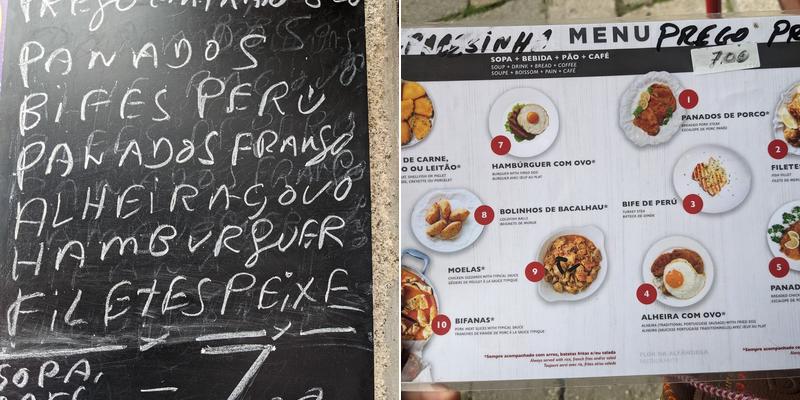 PANADOS
BIFES PERÚ
PANADOS FRANGO
ALHEIRA C/OVO
HAMBURGUER
FILETES PEIXE
7
SOPA,
MENU PREGO PR
7,0€
SOPA + BEBIDA + PÃO + CAFÉ
SOUP + DRINK + BREAD + COFFEE
SOUPE + BOISSOM + PAIN + CAFÉ
1
PANADOS DE PORCO*
BREADED PORK STEAK
ESCALOPE DE PORC PANÉ
7
HAMBÚRGUER COM OVO*
BURGUER WITH FRIED EGG
BURGUER AVEC ŒUF AU PLAT
2
FILETE
DE CARNE,
O OU LEITÃO*
BIFE DE PERÚ
TURKEY STEAK
3
8
BOLINHOS DE BACALHAU*
CODFISH BALLS
BEIGNETS DE MORUE
MOELAS*
CHICKEN GIZZARDS WITH TYPICAL SAUCE
GÉSIERS DE POULET À LA SAUCE TYPIQUE
9
4
5
PANAD
10
BIFANAS*
PORK MEAT SLICES WITH TYPICAL SAUCE
TRANCHES DE VIANDE DE PORC À LA SAUCE TYPIQUE
ALHEIRA COM OVO*
ALHEIRA (TRADITIONAL PORTUGUESE SAUSAGE) WITH FRIED EGG
ALHEIRA (SAUCISSE PORTUGAISE TRADITIONNELLE) AVEC ŒUF AU PLAT
*Sempre acompanhado com arroz, batatas fritas e/ou salada
Always served with rice, french fries and/or salad
Toujours servi avec riz, frites et/ou salade
FLOR DA ALFÂNDEGA
*Sempre acompanhado co